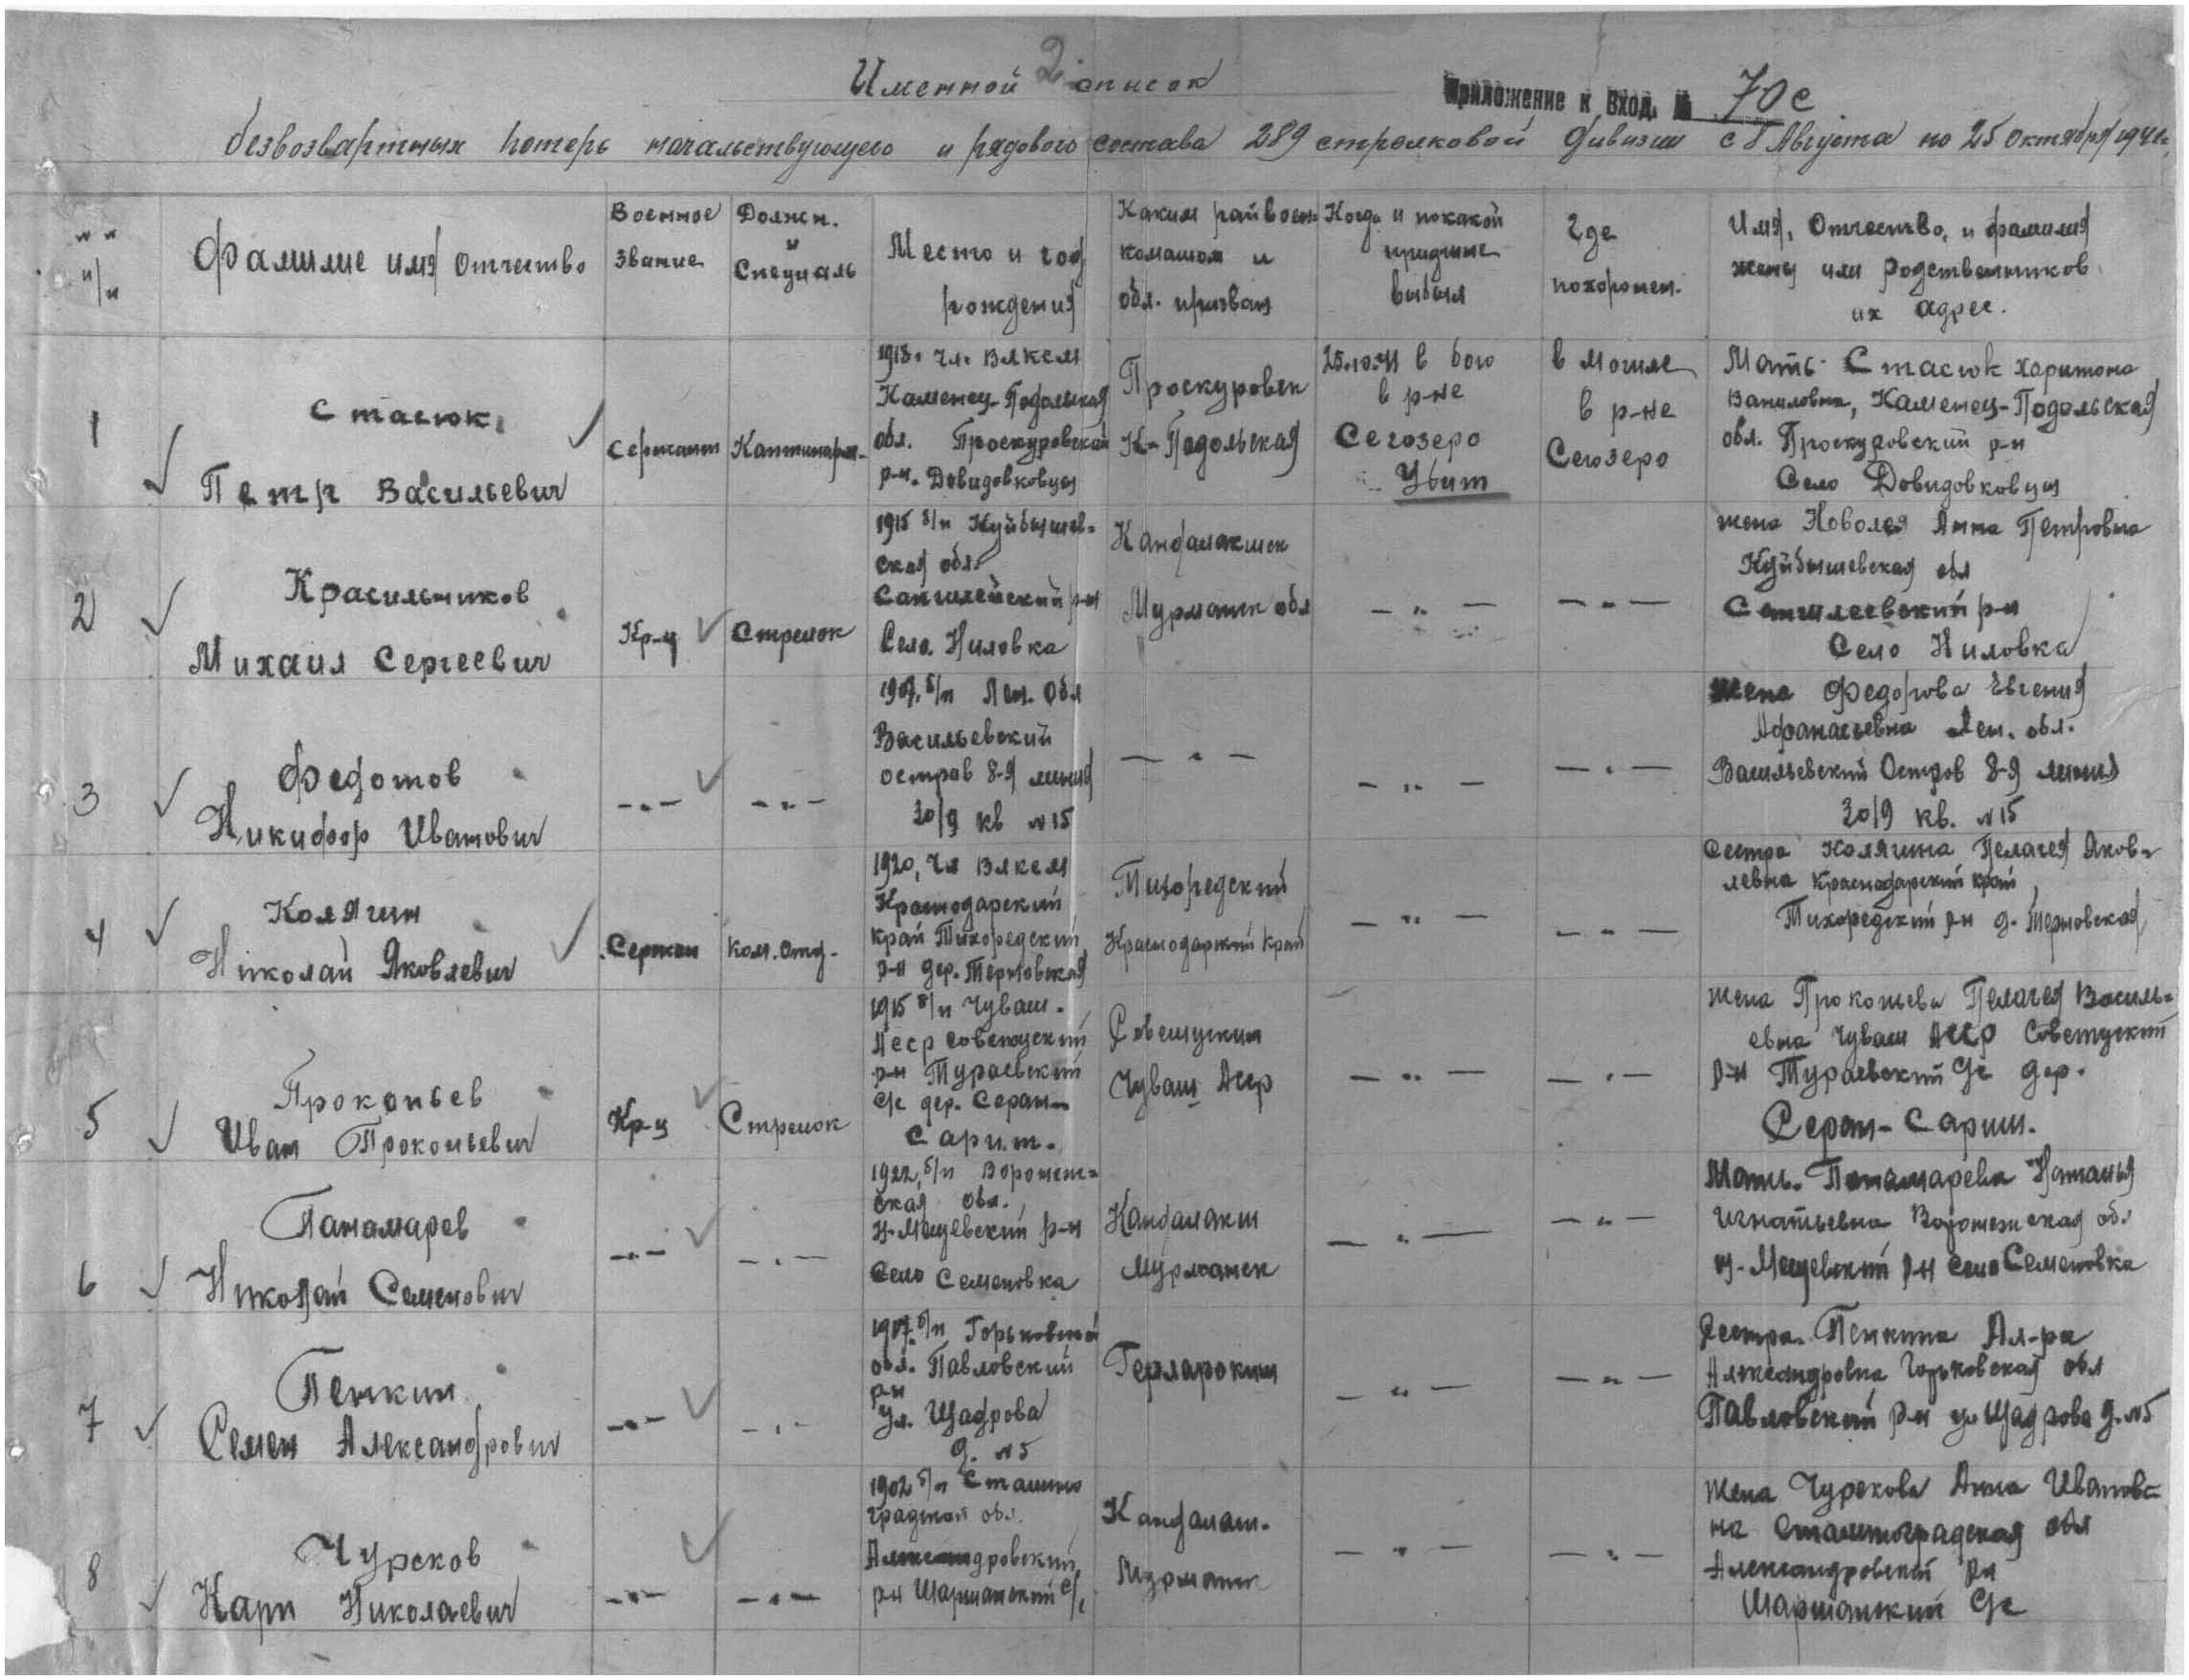 2
Именной список
Приложение к Вход. № 70с
безвозвартных потерь начальствующего и рядового состава 289 стрелковой дивизии с 8 Августа по 25 октября 1941г.
№ №
п/п
Фамилие имя отчество
Военное
звание
Должн.
и
Специаль
Место и год
рождения
Каким райвоен
коматом и
обл. призван
Когда и по какой
причине
выбыл
Где
похоронен.
Имя, Отчество, и фамилия
жены или родственников
их адрес.
1
Стасюк
Петр Васильевич
Сержант
1918. чл. ВЛКСМ
Каменец-Подольская
обл. Проскуровский
р-н. Довидовковцы
Проскуровск
К-Подольская
25.10.41 в бою
в р-не
Сегозеро
Убит
в Могиле
в р-не
Сегозеро
Мать Стасюк Харитона
Каменец-Подольская
обл. Проскуровский р-н
Село Довидовковцы
2
Красильников
Михаил Сергеевич
Кр-ц
Стрелок
1915 б/п Куйбышев-
ская обл.
р-н
Село Ниловка
Кандалакшск
Мурманск обл
— " —
— " —
жена Анна Петровна
Куйбышевская обл
Сенгилеевский р-н
Село Ниловка
3
Федотов
Никифор Иванович
— " —
— " —
1907. б/п Лен. Обл
Васильевский
остров 8-я линия
30/9 кв №15
— " —
— " —
— " —
Жена Федорова Евгения
Афанасьевна Лен. обл.
Васильевский Остров 8-я линия
30/9 кв. №15
4
Колягин
Николай Яковлевич
Сержан
Ком. отд.
1920, чл ВЛКСМ
Краснодарский
край Тихорецкий
р-н дер. Терновская
Тихорецкий
Краснодарский край
— " —
— " —
Сестра Колягина Пелагея Яков-
левна Краснодарский край
Тихорецкий р-н д. Терновская
5
Прокопьев
Иван Прокопьевич
Кр-ц
Стрелок
1915 б/п Чуваш.
АССР Советский
р-н Тураевский
с/с дер.
Чуваш АССР
— " —
— " —
жена Прокопьева Пелагея Василь-
евна Чуваш АССР Советский
р-н Тураевский с/с дер.
6
Панамарев
Николай Семенович
— " —
— " —
1922, б/п Воронеж-
ская обл.
р-н
село Семеновка
Кандалакш
Мурманск
— " —
— " —
Мать. Панамарева Наталья
Игнатьевна Воронежская обл
р-н село Семеновка
7
Пенкин
Семен Александрович
— " —
— " —
1907. б/п Горьковской
обл. Павловский
р-н
ул. Щадрова
д. №5
— " —
— " —
Сестра. Пенкина Ал-ра
Александровна Горьковская обл
Павловский р-н ул Щадрова д. №5
8
Чурсков
Карп Николаевич
— " —
— " —
1902 б/п Сталино
градской обл.
Александровский
р-н с/с
Кандалаш.
Мурманск
— " —
— " —
Жена Чурскова Анна Ивановс-
на Сталинградская обл
Александровский р-н
с/с